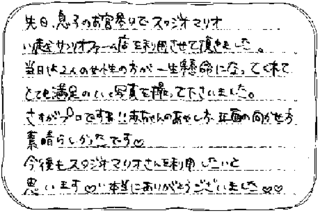 先日、息子のお宮参りでスタジオマリオ
店を利用させて頂きました。
当日は2人の女性の方が一生懸命になってくれて
とても満足のいく写真を撮って下さいました。
さすがプロですね!!赤ちゃんのあやし方、正面の向かせ方
素晴らしかったです♡
今後もスタジオマリオさんを利用したいと
思います♡本当にありがとうございました♡♡